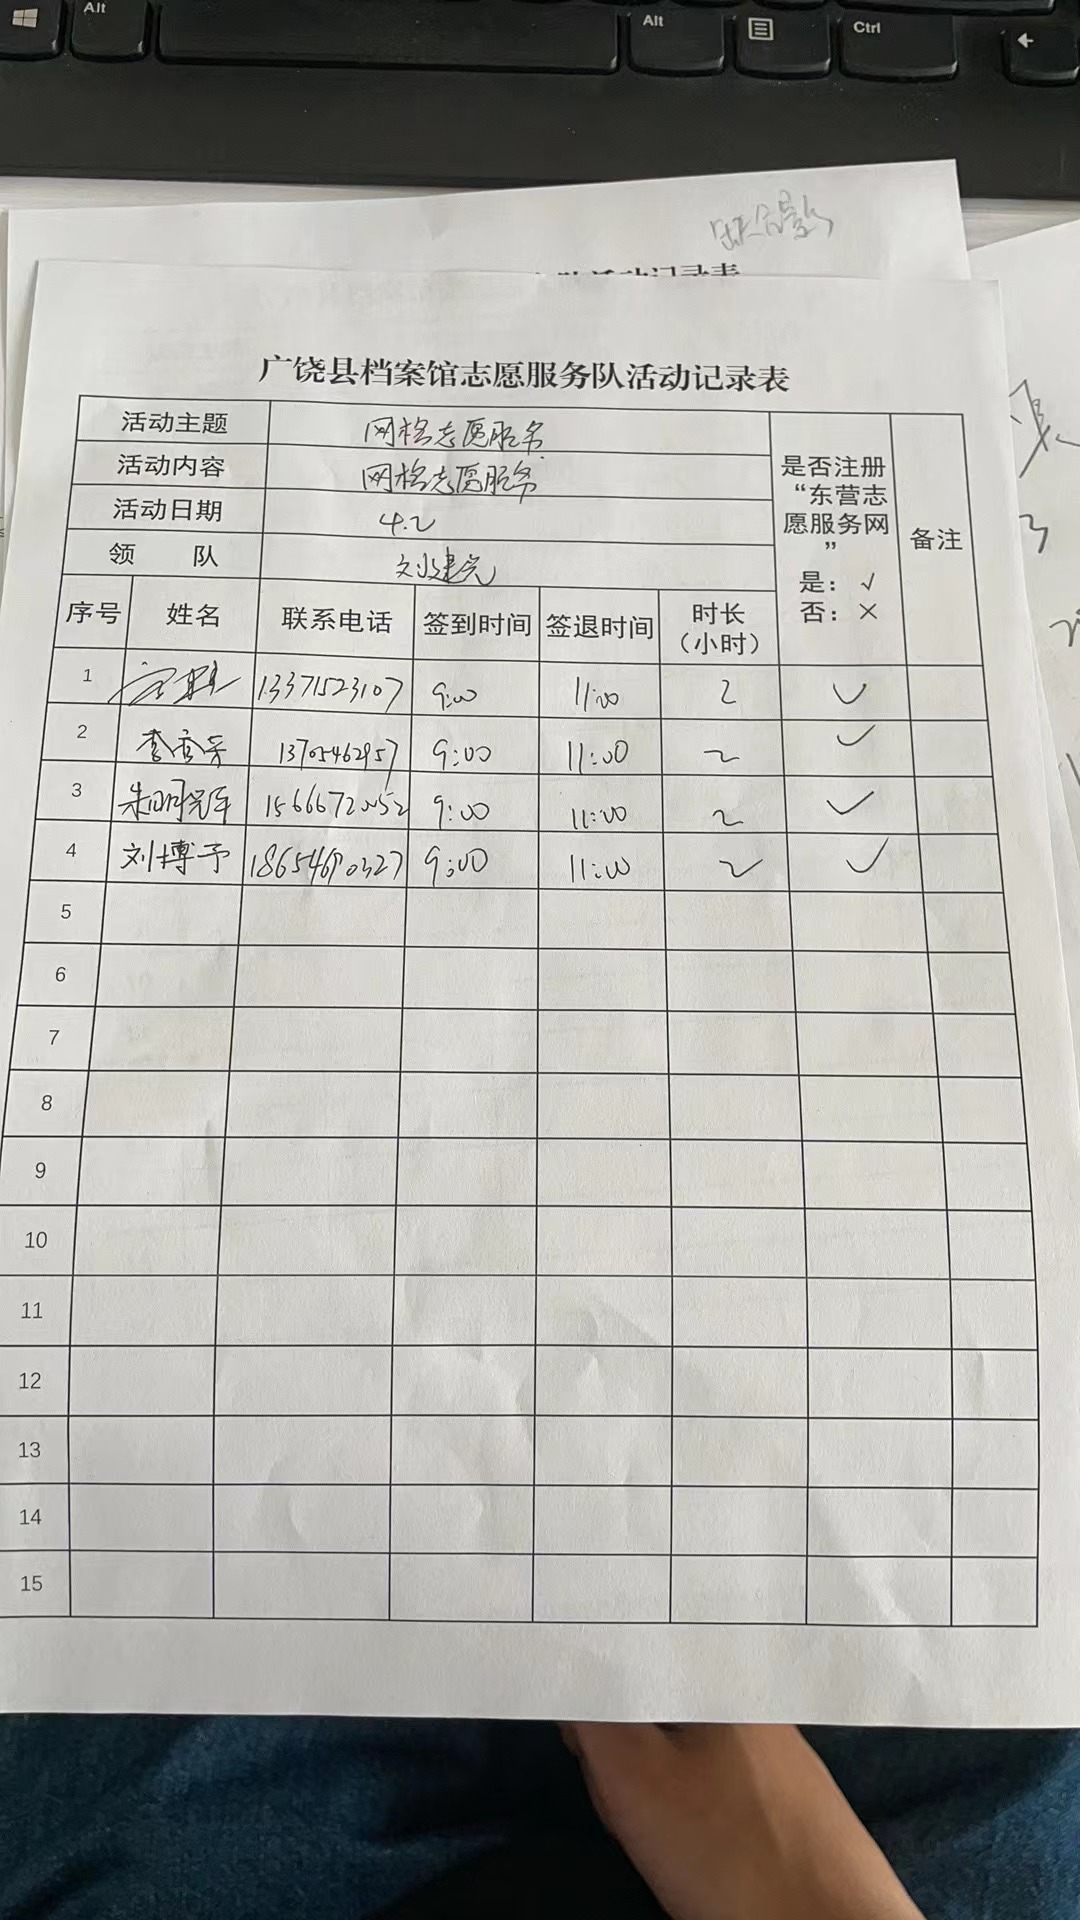 Alt
Alt
Ctrl
广饶县档案馆志愿服务队活动记录表
活动主题 网格志愿服务
活动内容 网格志愿服务
活动日期 4.2
领 队 刘建亮
是否注册“东营志愿服务网” 是：√ 否：×
备注
序号 姓名 联系电话 签到时间 签退时间 时长（小时）
1 13371523107 9:00 11:00 2 ✓
2 13705462957 9:00 11:00 2 ✓
3 15666720052 9:00 11:00 2 ✓
4 刘博予 9:00 11:00 2 ✓
5
6
7
8
9
10
11
12
13
14
15